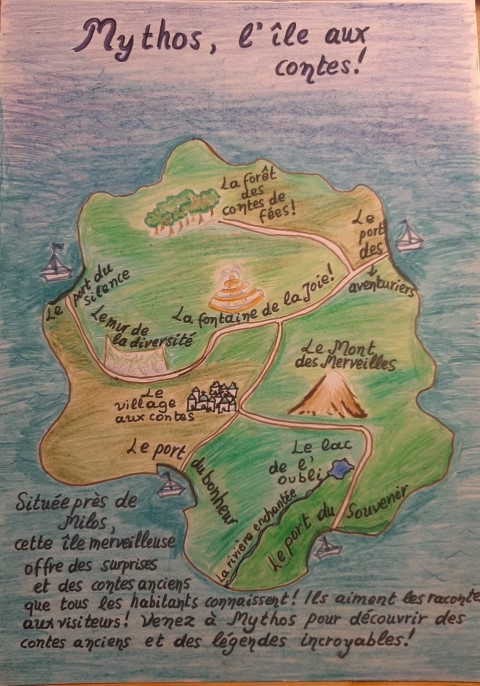 Mythos, l'île aux
contes!
La forêt
des
contes de
fées!
Le
port
des
aventuriers
Le port du
silence
La fontaine de la Joie!
Le mur de
la diversité
Le Mont
des Merveilles
Le
village
aux contes
Le port
du bonheur
Le lac
de l'
oubli
La rivière enchantée
Le port du Souvenir
Située près de
Milos,
cette île merveilleuse
offre des surprises
et des contes anciens
que tous les habitants connaissent! Ils aiment les raconte
aux visiteurs! Venez à Mythos pour découvrir des
contes anciens et des légendes incroyables!